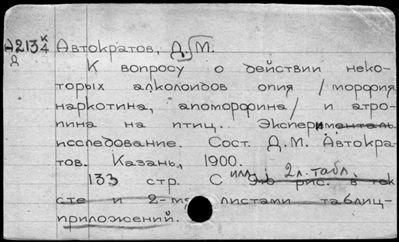 А213 К/4 Автократов, Д. М.
Д
К вопросу о действии неко-
торых алколоидов опия /морфия
наркотина, апоморфина/ и атро-
пина на птиц. Эксперименталь
исследование. Сост. Д.М. Автокра-
тов. Казань, 1900.
133 стр. С илл. 2 л. табл.
рис. в тек
сте и 2-мя листами таблиц-
приложений.